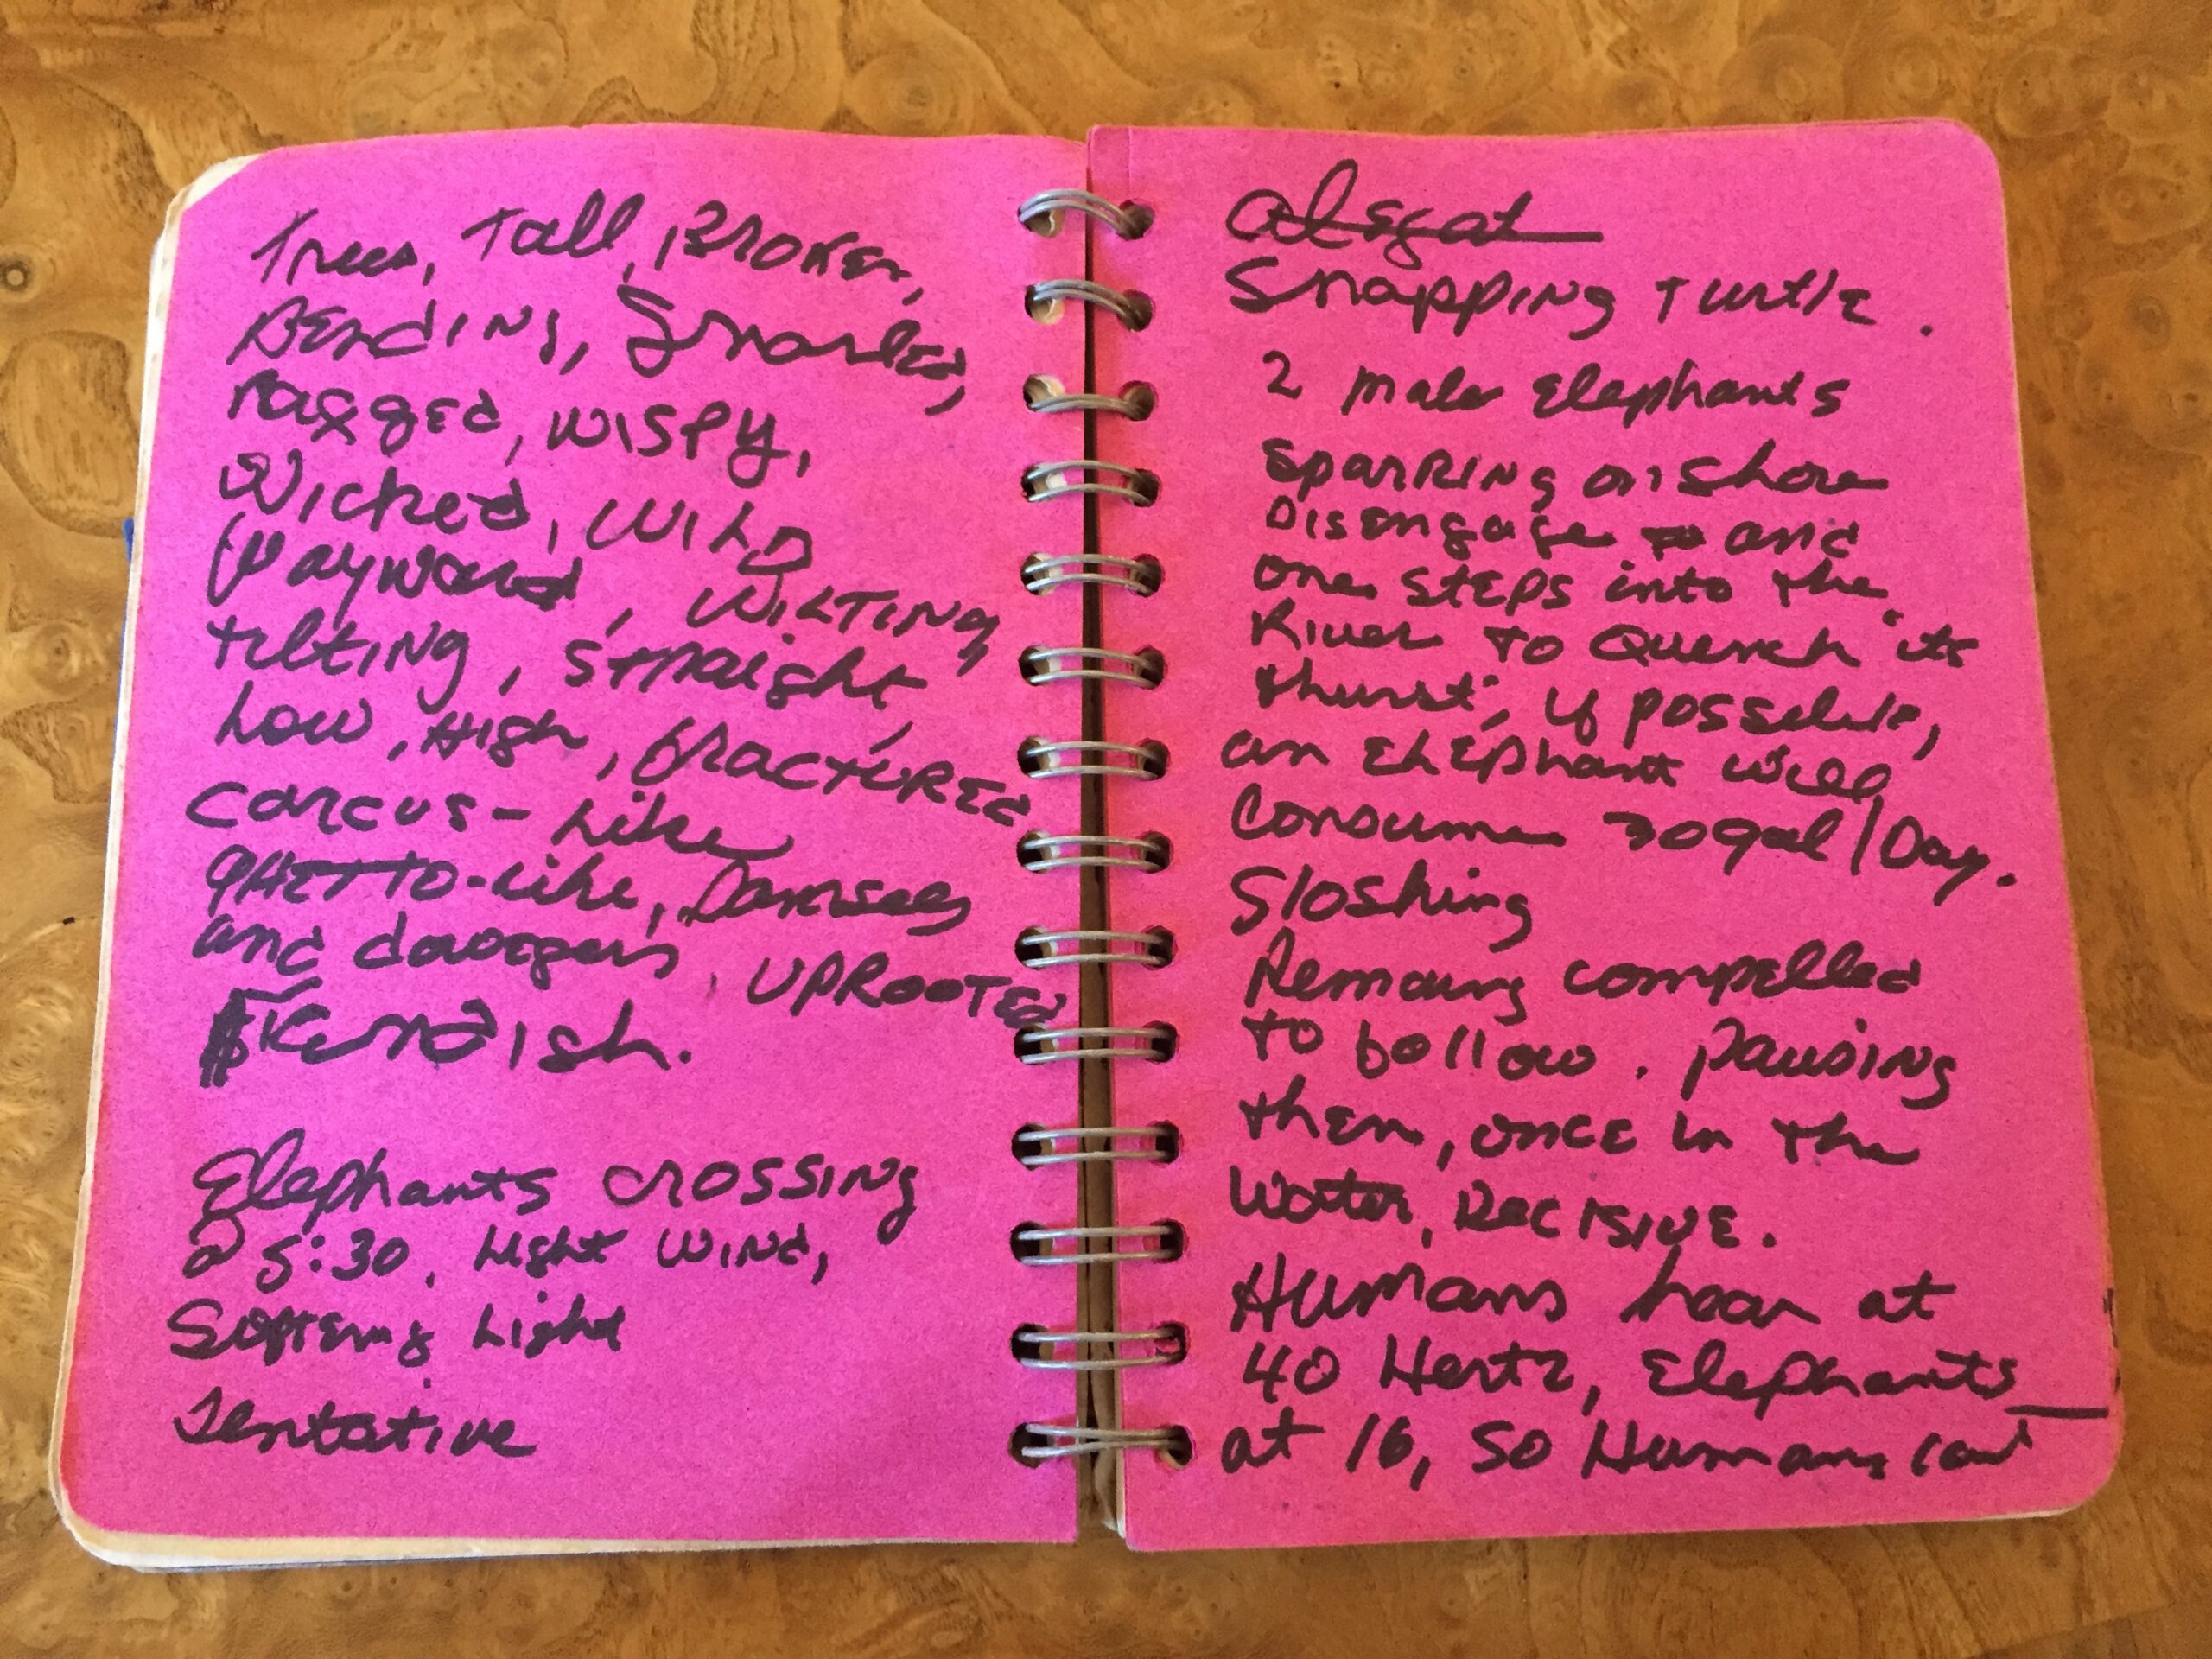 Trees, Tall, Broken,
Bending, Gnarled,
ragged, wispy,
Wicked, WILD
Wayward, WILTING,
tilting, straight,
Low, High, fractured
carcus-Like
gHETTO-like, Damsels
and daggers, UPROOTED
Fiendish.
Elephants crossing
@ 5:30, Light wind,
Softening Light
Tentative
Snapping turtle.
2 male Elephants
SpaRRing on shore
Disengage and
one STEPS into the
River to Quench its
thirst; if possible,
an ElEphant will
Consume 30gal/Day.
Sloshing
Remaing compelled
to follow. pausing
then, once in the
water, DECISIVE.
Humans hear at
40 Hertz, Elephants
at 16, so Humans can't